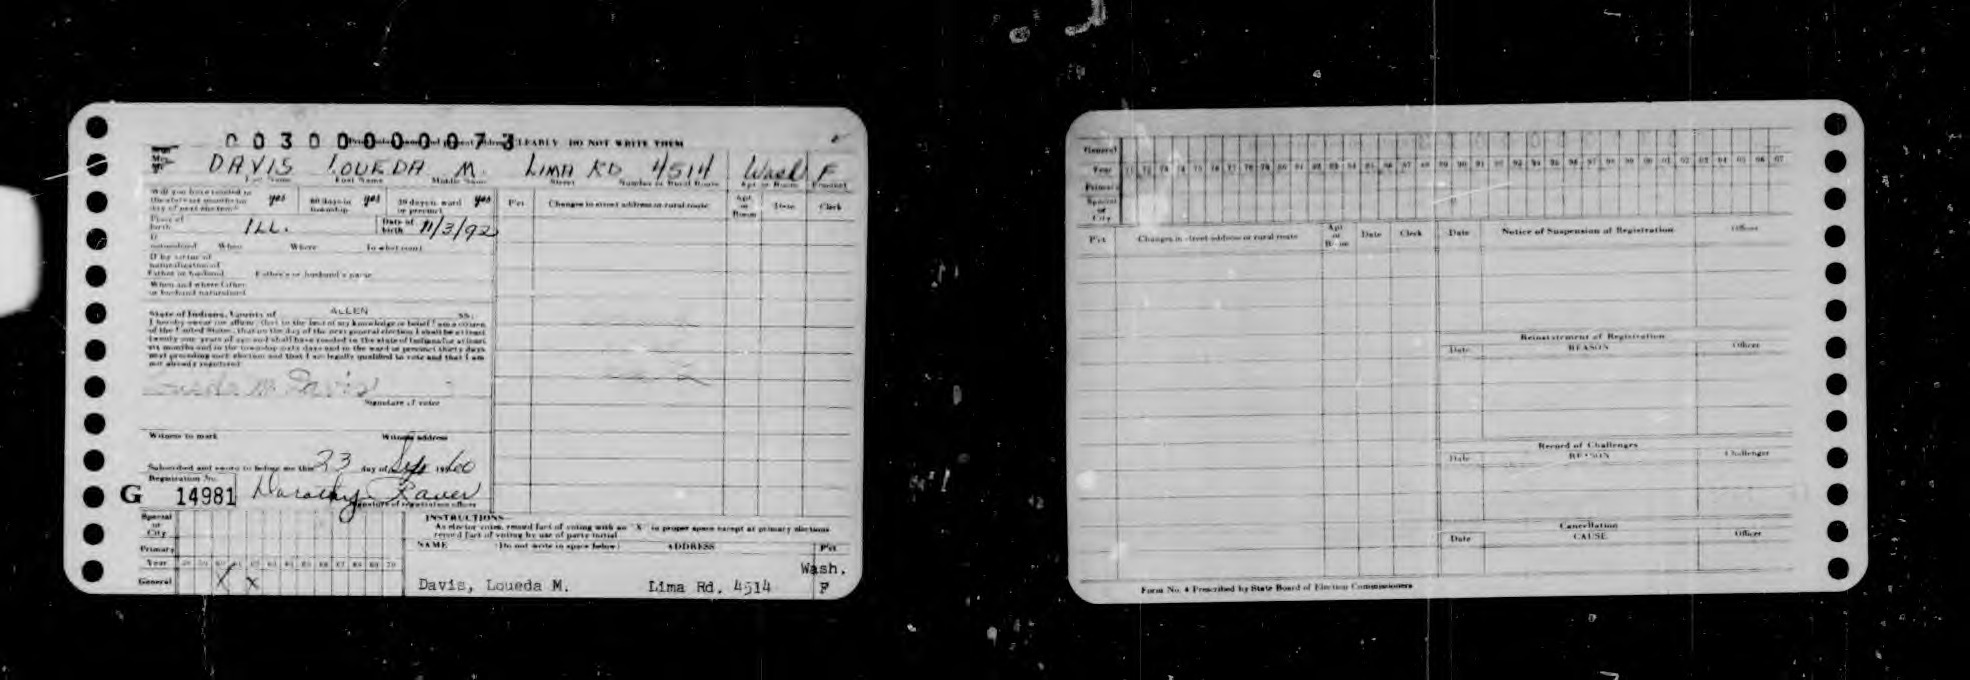 0030000073 CLEARLY DO NOT WRITE THEM
DAVIS LOUEDA M. LIMA RD 4514 Wash F
Last Name First Name Middle Name Street Number or Rural Route Apt or Room Precinct
Will you have resided in the state six months on day of next election? yes 60 days in township yes 30 days in ward or precinct yes
P'ct Changes in street address or rural route Apt or Room Date Clerk
Place of birth ILL. Date of birth 11/3/92
If naturalized When Where In what court
If by virtue of naturalization of
Father or husband Father's or husband's name
When and where father or husband naturalized
State of Indiana, County of ALLEN SS:
I hereby swear (or affirm) that to the best of my knowledge or belief I am a citizen
of the United States, that on the day of the next general election I shall be at least
twenty one years of age and shall have resided in the state of Indiana for at least
six months and in the township sixty days and in the ward or precinct thirty days
next preceding such election and that I am legally qualified to vote and that I am
not already registered
Loueda M Davis
Signature of voter
Witness to mark Witness address
Subscribed and sworn to before me this 23 day of Sept 1960
Registration No.
G 14981 Dorothy Raver
Signature of registration officer
Special or City
Primary
Year 58 59 60 61 62 63 64 65 66 67 68 69 70
General X X
INSTRUCTIONS
As elector votes, record fact of voting with an "X" in proper space except at primary elections
record fact of voting by use of party initial
NAME (Do not write in space below) ADDRESS P'ct
Wash.
Davis, Loueda M. Lima Rd. 4514 F
General
Year 71 72 73 74 75 76 77 78 79 80 81 82 83 84 85 86 87 88 89 90 91 92 93 94 95 96 97 98 99 00 01 02 03 04 05 06 07
Primary
Special or City
P'ct Changes in street address or rural route Apt or Room Date Clerk
Date Notice of Suspension of Registration Officer
Reinstatement of Registration
Date REASON Officer
Record of Challenges
Date REASON Challenger
Cancellation
Date CAUSE Officer
Form No. 4 Prescribed by State Board of Election Commissioners